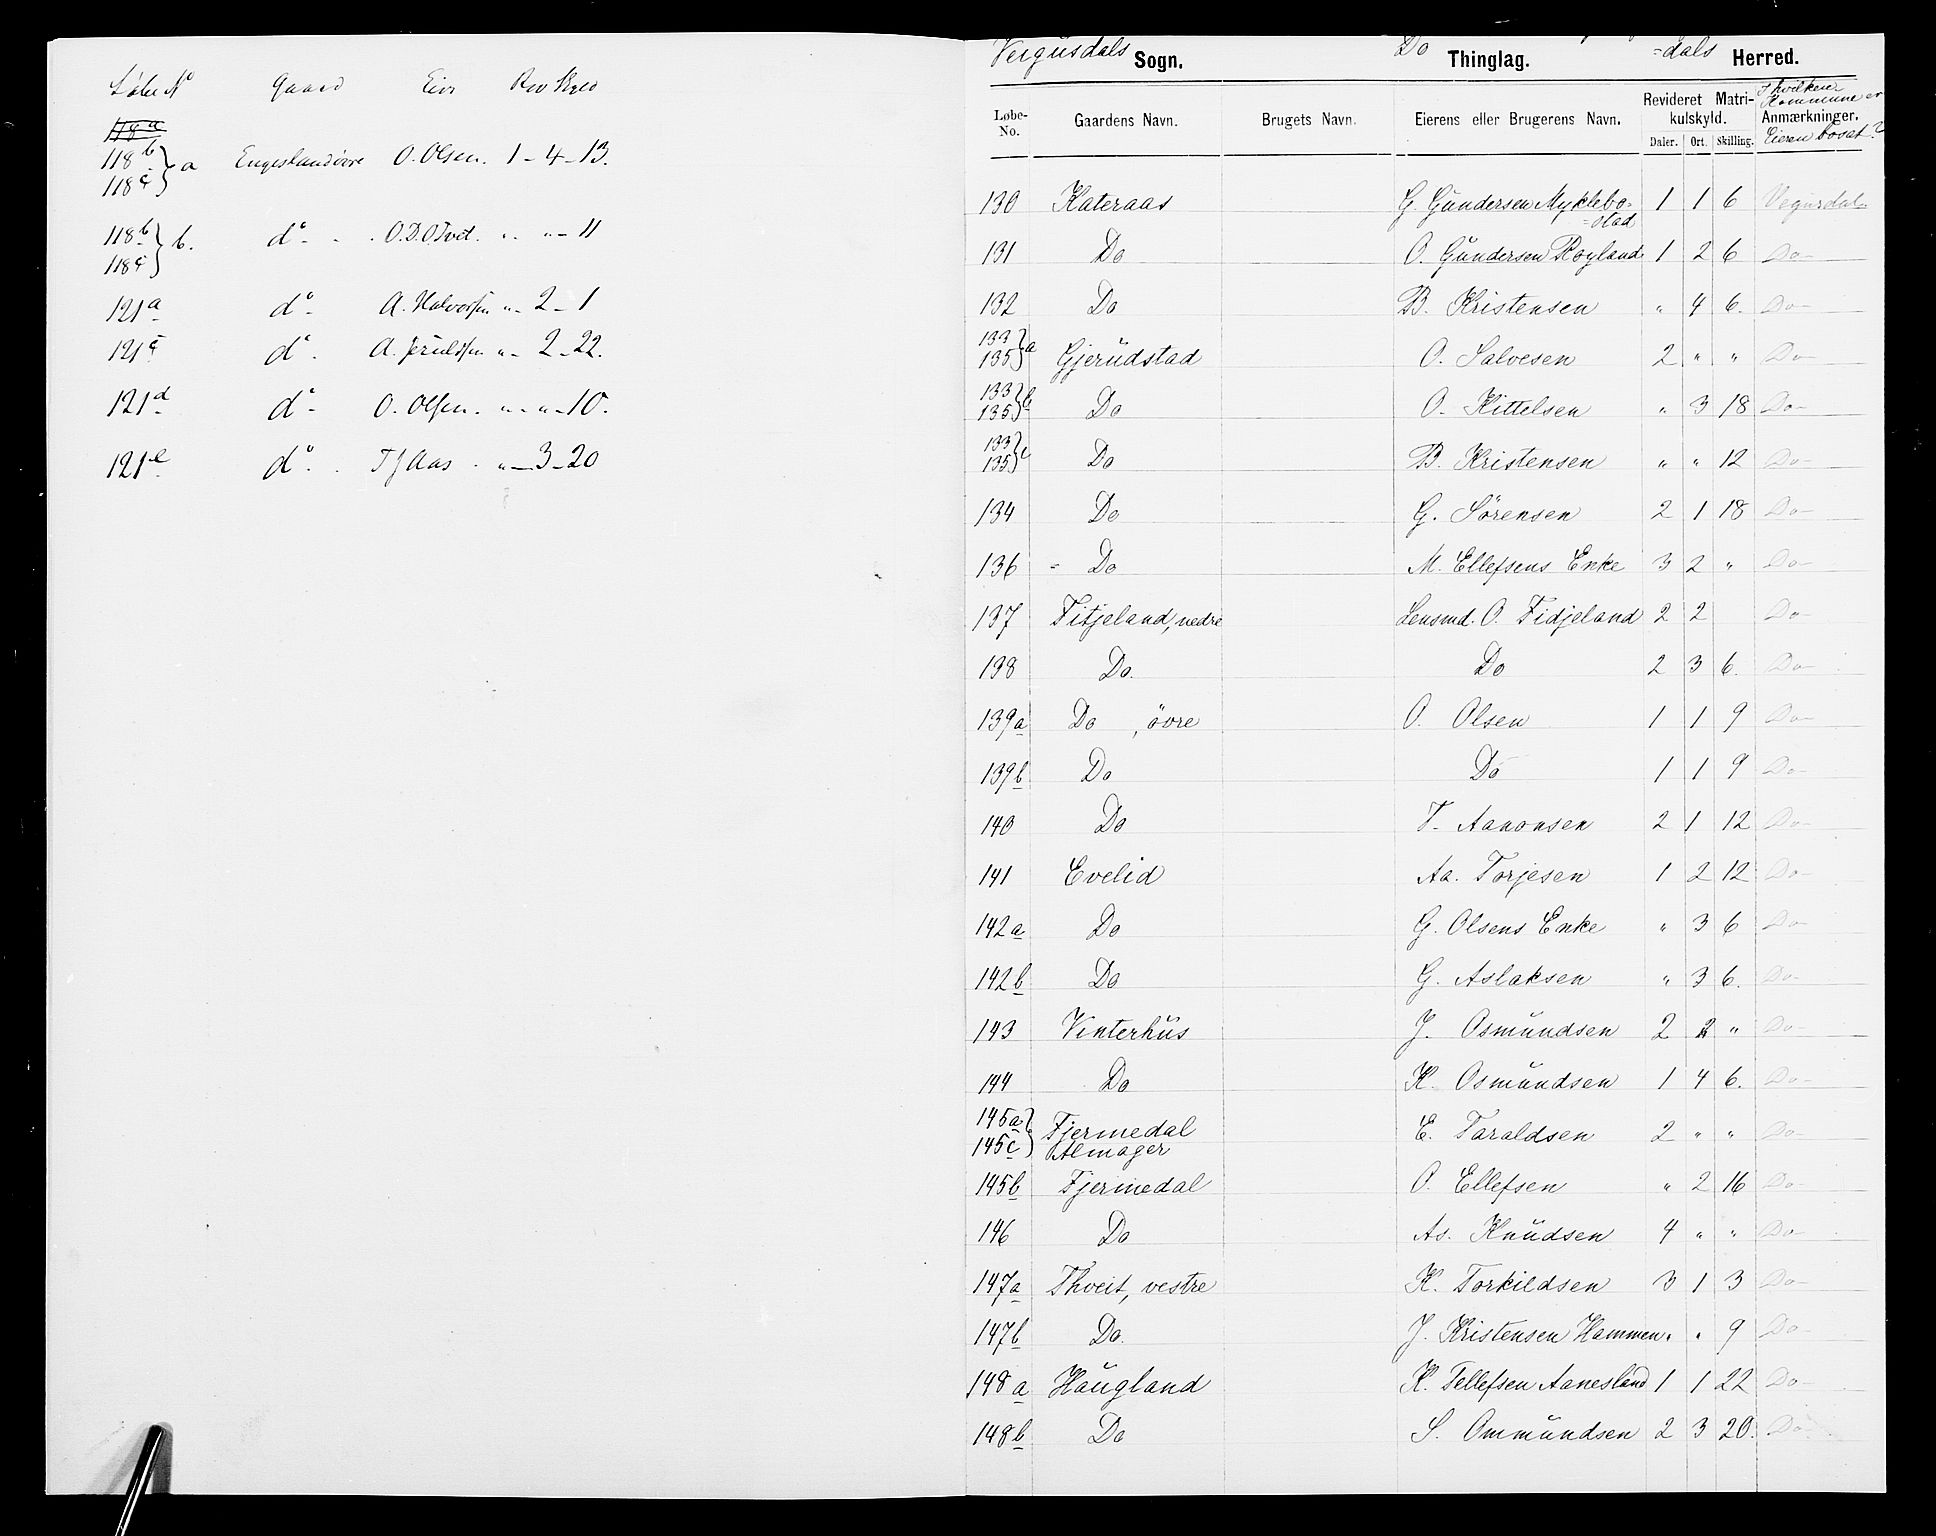 Løbe No Gaard Eier Rev Skyld
118a
118b } a Engeslandøvre O. Olsen. 1 - 4 - 13.
118c
118b } b. do - . O.D.O Tvet. " " - 11
118c
121a do - A. Halvorsen " - 2 - 1
121c do . A. " - 2 - 22.
121d do - O. Olsen . " - " - 10.
121e do . T J Aas . " - 3 - 20
Vegusdals Sogn. Do Thinglag. =dals Herred.
Løbe-No. Gaardens Navn. Brugets Navn. Eierens eller Brugerens Navn. Revideret Matrikulskyld. Daler. Ort. Skilling. Anmærkninger.
I hvilken Kommune er Eieren bosat?
130 Kateraas G. Gundersen Myklebo=stad 1 1 6 Vegusdal
131 Do O. Gundersen Røyland 1 2 6 Do
132 Do B. Kristensen " 4 6. Do
133 135 } a Gjerudstad O. Salvesen 2 " " Do
133 135 } b Do O. Kittelsen " 3 18 Do
133 135 } c Do B. Kristensen " " 12 Do
134 Do G. Sörensen 2 1 18 Do
136 - Do M. Ellefsens Enke 3 2 " Do
137 Fitjeland, nedre Lensmd. O. Fidjeland 2 2 Do
138 Do. Do 2 3 6. Do
139a Do , övre O. Olsen 1 1 9 Do
139b Do Do 1 1 9 Do
140 Do T. Aanonsen 2 1 12 Do
141 Evelid Aa. Torjesen 1 2 12 Do
142a Do G. Olsens Enke " 3 6 Do
142b Do G. Aslaksen " 3 6. Do
143 Vinterhus J. Osmundsen 2 2 " Do
144 Do K. Osmundsen 1 4 6. Do
145a } Fjermedal E. Taraldsen 2 " " Do
145c } Almager
145b Fjermedal O. Ellefsen " 2 16 Do
146 Do As. Knudsen 4 " " Do
147a Thveit, vestre K. Torkildsen 3 1 3 Do
147b Do. J. Kristensen Hammen " " 9 Do
148a Haugland K. Tellefsen Aanesland 1 1 22 Do
148b Do S. Ommundsen 2 3 20. Do